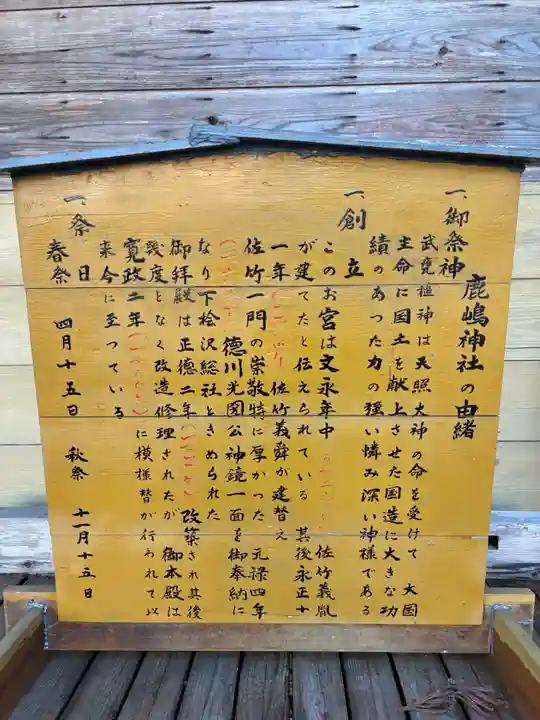 鹿嶋神社の由緒
一、御祭神
武甕槌神は天照大神の命を受けて 大国
主命に国土を献上させた国造に大きな功
績のあった力の強い憐み深い神様である
一、創立
このお宮は文永年中 佐竹義胤
が建てたと伝えられている 其後永正十
一年 佐竹義舜が建替え
佐竹一門の崇敬特に厚かった 元禄四年
徳川光圀公神鏡一面を御奉納に
なり下桧沢総社ときめられた
御拝殿は正徳二年 改築され其後
幾度となく改造修理されたが 御本殿は
寛政二年 に模様替が行われて以
来今に至つている
一、祭日
春祭 四月十五日 秋祭 十一月十五日